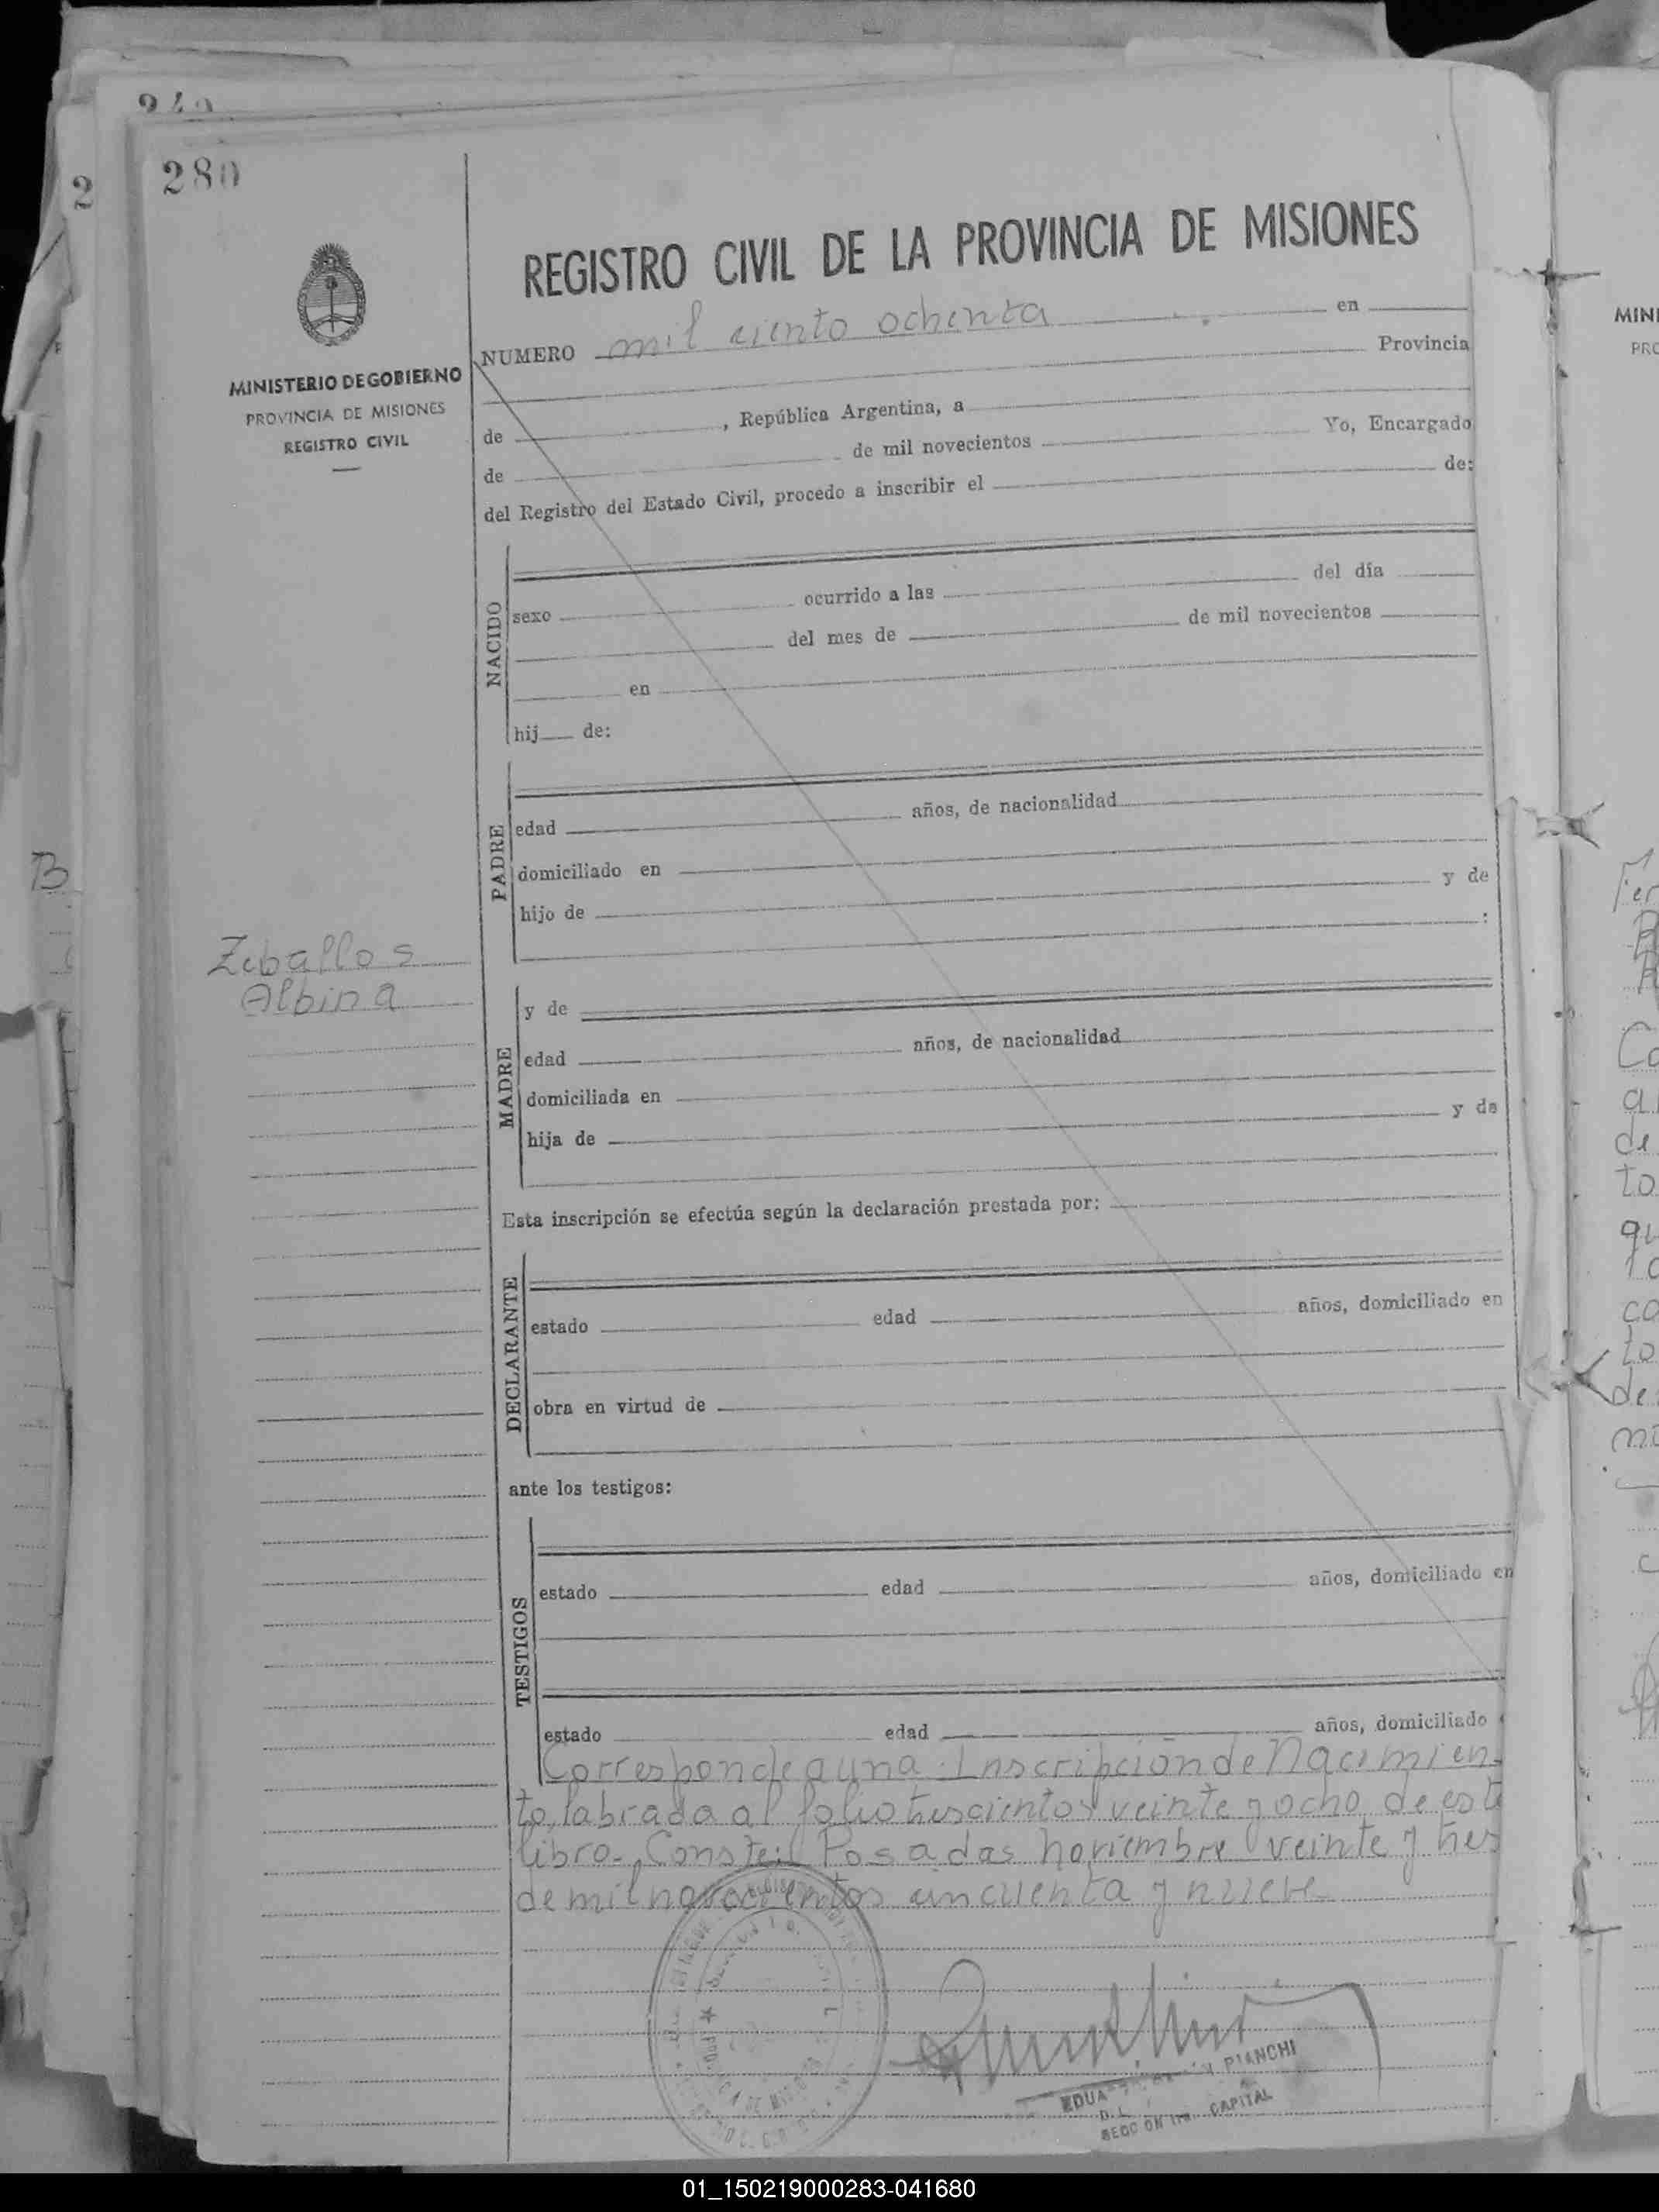 280
MINISTERIO DE GOBIERNO
PROVINCIA DE MISIONES
REGISTRO CIVIL
REGISTRO CIVIL DE LA PROVINCIA DE MISIONES
NUMERO mil ciento ochenta en
Provincia
de , República Argentina, a
de de mil novecientos Yo, Encargado
del Registro del Estado Civil, procedo a inscribir el de:
NACIDO
sexo ocurrido a las del día
del mes de de mil novecientos
en
hij de:
PADRE
edad años, de nacionalidad
domiciliado en
hijo de y de
:
Zeballos
Albina
MADRE
y de
edad años, de nacionalidad
domiciliada en
hija de y de
Esta inscripción se efectúa según la declaración prestada por:
DECLARANTE
estado edad años, domiciliado en
obra en virtud de
ante los testigos:
TESTIGOS
estado edad años, domiciliado en
estado edad años, domiciliado
Corresponde a una Inscripción de Nacimien
to, labrada al folio trescientos veinte y ocho de este
libro. Conste: Posadas noviembre veinte y tres
de mil novecientos cincuenta y nueve
PIANCHI
CAPITAL
01_150219000283-041680